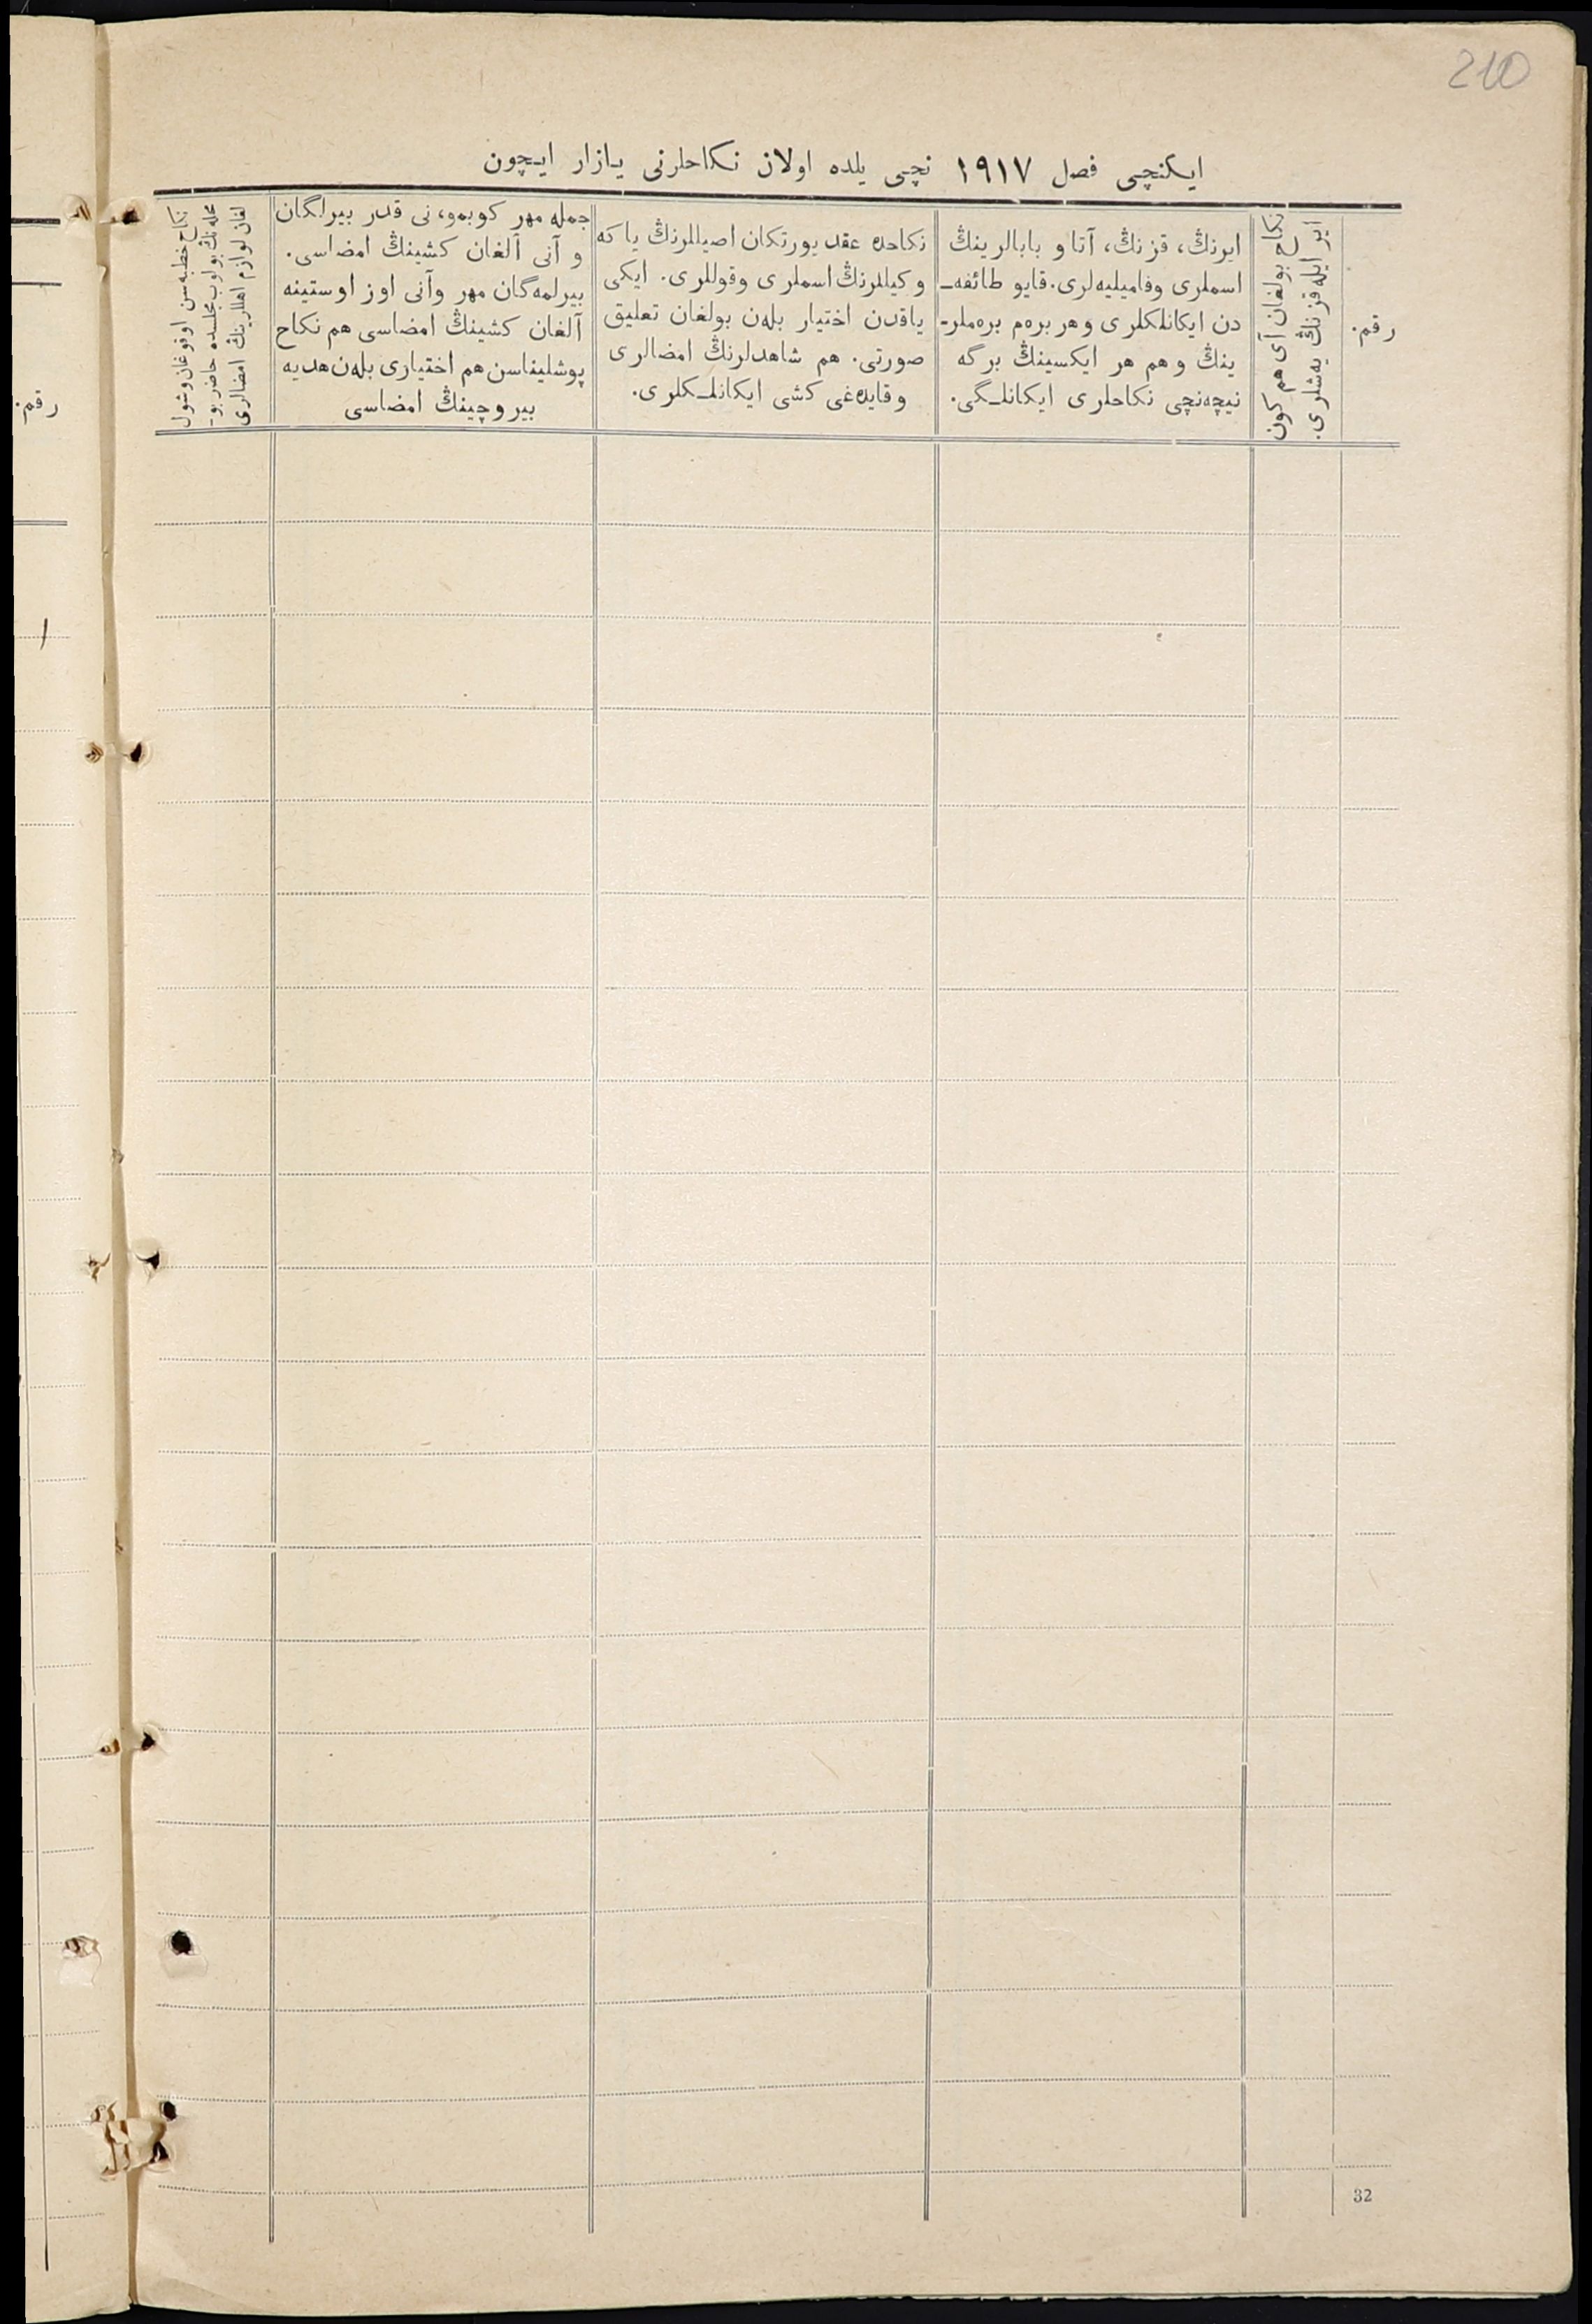 210
ایکنچی فصل ١٩١٧ نچی یلده اولان نکاحلرنی یازار ایچون
رقم.
ایر ایله قزنڭ یه‌شلری.
نکاح بولغان آی هم کون
ایرنڭ، قزنڭ، آتا و بابالرینڭ
اسملری وفامیلیه‌لری. قایو طائفه‌ـ
دن ایکانلکلری وهر بره‌م بره‌ملرـ
ینڭ وهم هر ایکسینڭ برگه
نیچه‌نچی نکاحلری ایکانلـگی.
نکاحده عقد یورتکان اصیللرنڭ یا که
وکیللرنڭ اسملری وقوللری. ایکی
یاقدن اختیار بله‌ن بولغان تعلیق
صورتی. هم شاهدلرنڭ امضالری
وقایده‌غی کشی ایکانلـکلری.
جمله مهر کوبمو، نی قدر بیرلگان
و آنی آلغان کشینڭ امضاسی.
بیرلمه‌گان مهر وآنی اوز اوستینه
آلغان کشینڭ امضاسی هم نکاح
پوشلیناسن هم اختیاری بله‌ن هدیه
بیروچینڭ امضاسی
نکاح خطبه‌سن اوقوغان وشول
محله‌نڭ بولوب مجلسده حاضر بوـ
لغان لوازم اهللرینڭ امضالری
رقم.
32